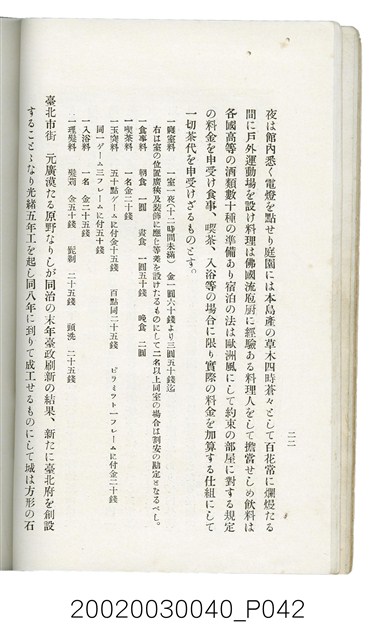 二二
夜は館內悉く電燈を點せり庭園には本島產の草木四時蒼々として百花常に爛熳たる
間に戶外運動場を設け料理は佛國流庖厨に經驗ある料理人をして擔當せしめ飮料は
各國高等の酒類數十種の準備あり宿泊の法は歐洲風にして約束の部屋に對する規定
の料金を申受け食事、喫茶、入浴等の場合に限り實際の料金を加算する仕組にして
一切茶代を申受けざるものとす。
一寢室料 一室一夜(十二時間未滿) 金一圓六十錢より三圓五十錢迄
右は室の位置廣狹及裝飾に應じ等差を設けたるものにして二名以上同室の場合は割安の勘定となるべし。
一食事料 朝食 一圓 晝食 一圓五十錢 晚食 二圓
一喫茶料 一名金二十錢
一玉突料 五十點ゲームに付金十五錢 百點同二十五錢 ピラミツト一フレームに付金二十錢
同一ゲーム三フレームに付五十錢
一入浴料 一名 金二十五錢
一理髮料 髮刈 金五十錢 髭剃 二十五錢 頭洗 二十五錢
臺北市街 元廣漠たる原野なりしが同治の末年臺政刷新の結果、新たに臺北府を創設
することゝなり光緒五年工を起し同八年に到りて成工せるものにして城は方形の石
20020030040_P042